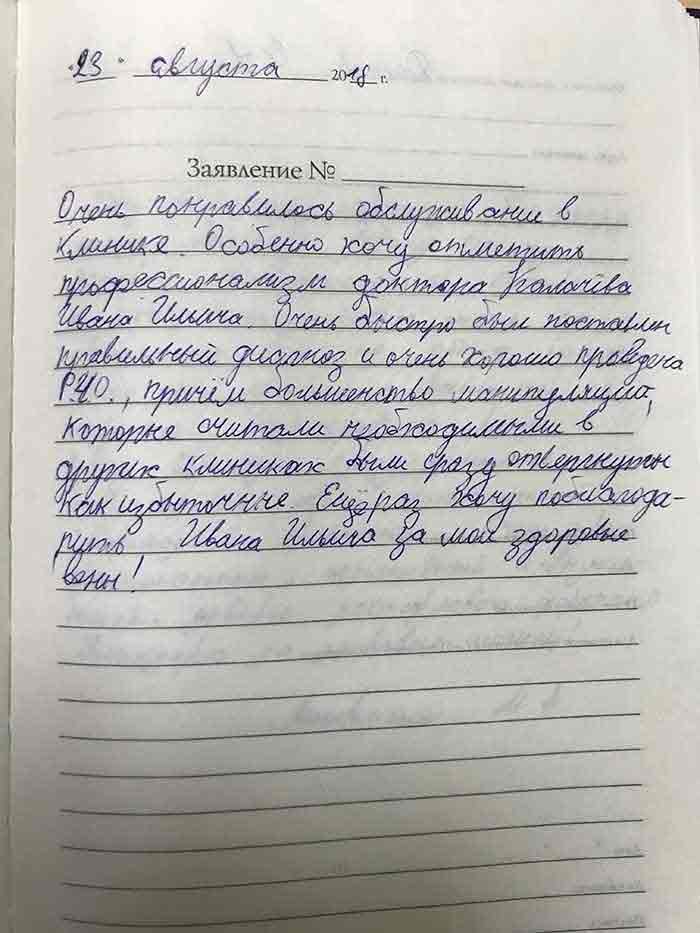 "23" августа 2018 г.
Заявление №
Очень понравилось обслуживание в
клинике. Особенно хочу отметить
профессионализм доктора Калачёва
Ивана Ильича. Очень быстро был поставлен
правильный диагноз и очень хорошо проведена
РЧО., причём большенство манипуляций,
которые считали необходимыми в
других клиниках были сразу отвергнуты
как избыточные. Ещё раз хочу поблагода-
рить Ивана Ильича за мои здоровые
вены!